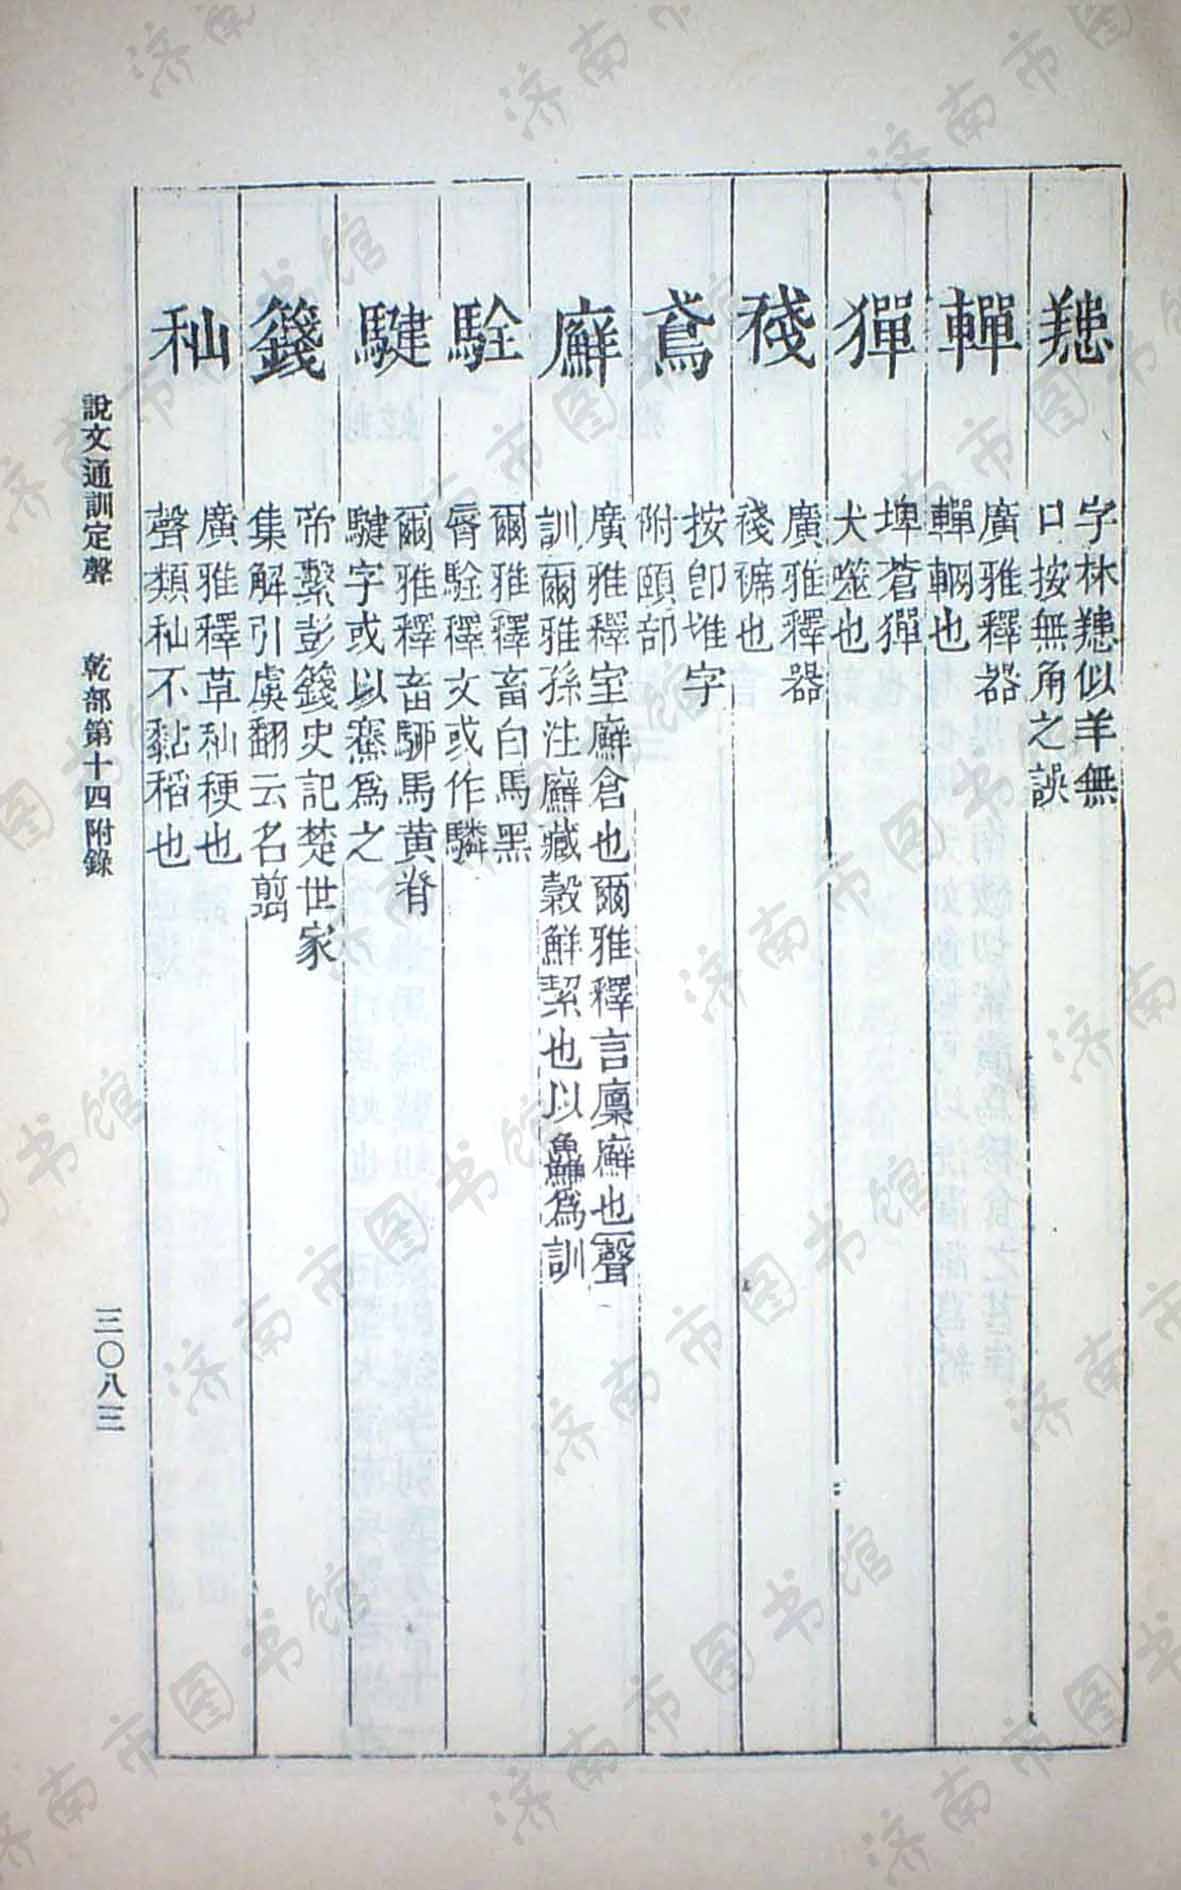 䍺
字林䍺似羊無
口按無角之誤
䡲
廣雅釋器
䡲輞也
㺗
埤蒼㺗
犬噬也
廣雅釋器
裭也
鳶
按卽字
附頤部
廯
廣雅釋室廯倉也爾雅釋言廩廯也聲
訓爾雅孫注廯藏穀鮮絜也以鱻爲訓
駩
爾雅釋畜白馬黑
脣駩釋文或作驎
騝
爾雅釋畜駵馬黄脊
騝字或以騫爲之
籛
帝繫彭籛史記楚世家
集解引虞翻云名翦
秈
廣雅釋草秈稉也
聲類秈不黏稻也
說文通訓定聲 乾部第十四附錄 三〇八三
济南市图书馆